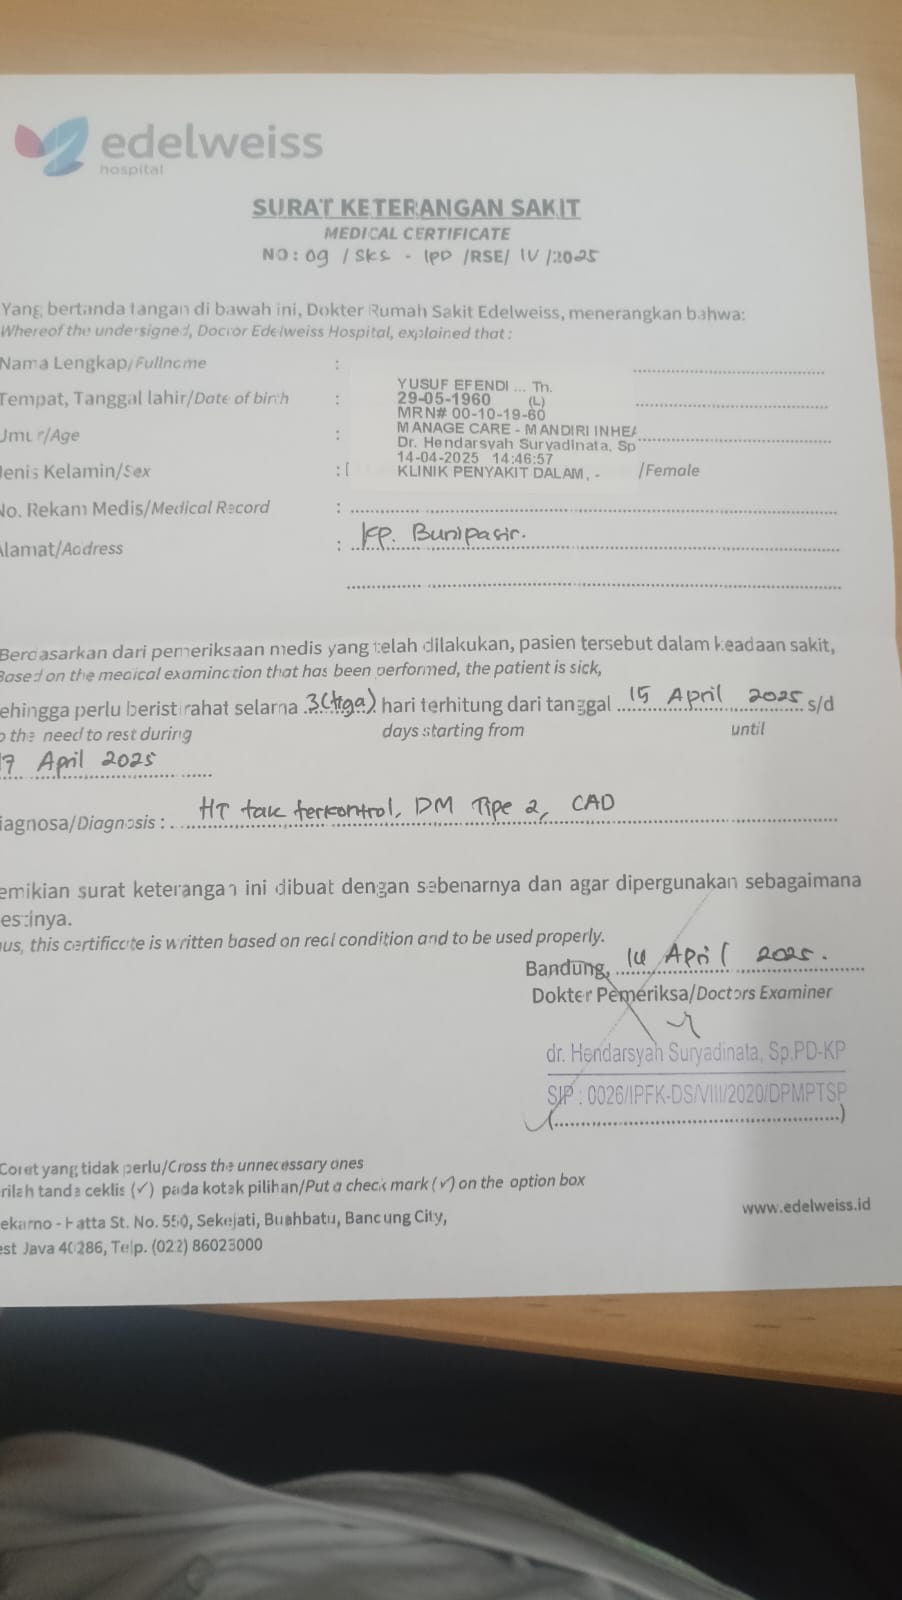 edelweiss
hospital
SURAT KETERANGAN SAKIT
MEDICAL CERTIFICATE
NO: 09 / SKS - IPD /RSE/ IV /2025
Yang bertanda tangan di bawah ini, Dokter Rumah Sakit Edelweiss, menerangkan bahwa:
Whereof the undersigned, Doctor Edelweiss Hospital, explained that :
Nama Lengkap/Fullname :
YUSUF EFENDI ... Tn.
Tempat, Tanggal lahir/Date of birth : 29-05-1960 (L)
MRN# 00-10-19-60
Umur/Age : MANAGE CARE - MANDIRI INHEA
Dr. Hendarsyah Suryadinata, Sp
14-04-2025 14:46:57
Jenis Kelamin/Sex : KLINIK PENYAKIT DALAM, - /Female
No. Rekam Medis/Medical Record :
Alamat/Address : Kp. Bunipasir.
Berdasarkan dari pemeriksaan medis yang telah dilakukan, pasien tersebut dalam keadaan sakit,
Based on the medical examination that has been performed, the patient is sick,
ehingga perlu beristirahat selama 3 (tiga) hari terhitung dari tanggal 15 April 2025 s/d
o the need to rest during days starting from until
17 April 2025
iagnosa/Diagnosis : HT tak terkontrol, DM Tipe 2, CAD
emikian surat keterangan ini dibuat dengan sebenarnya dan agar dipergunakan sebagaimana
estinya.
us, this certificate is written based on real condition and to be used properly.
Bandung, 14 April 2025.
Dokter Pemeriksa/Doctors Examiner
dr. Hendarsyah Suryadinata, Sp.PD-KP
SIP : 0026/IPFK-DS/VIII/2020/DPMPTSP
(....................)
Coret yang tidak perlu/Cross the unnecessary ones
rilah tanda ceklis (✓) pada kotak pilihan/Put a check mark (✓) on the option box
ekarno - Hatta St. No. 550, Sekejati, Buahbatu, Bandung City,
est Java 40286, Telp. (022) 86023000
www.edelweiss.id